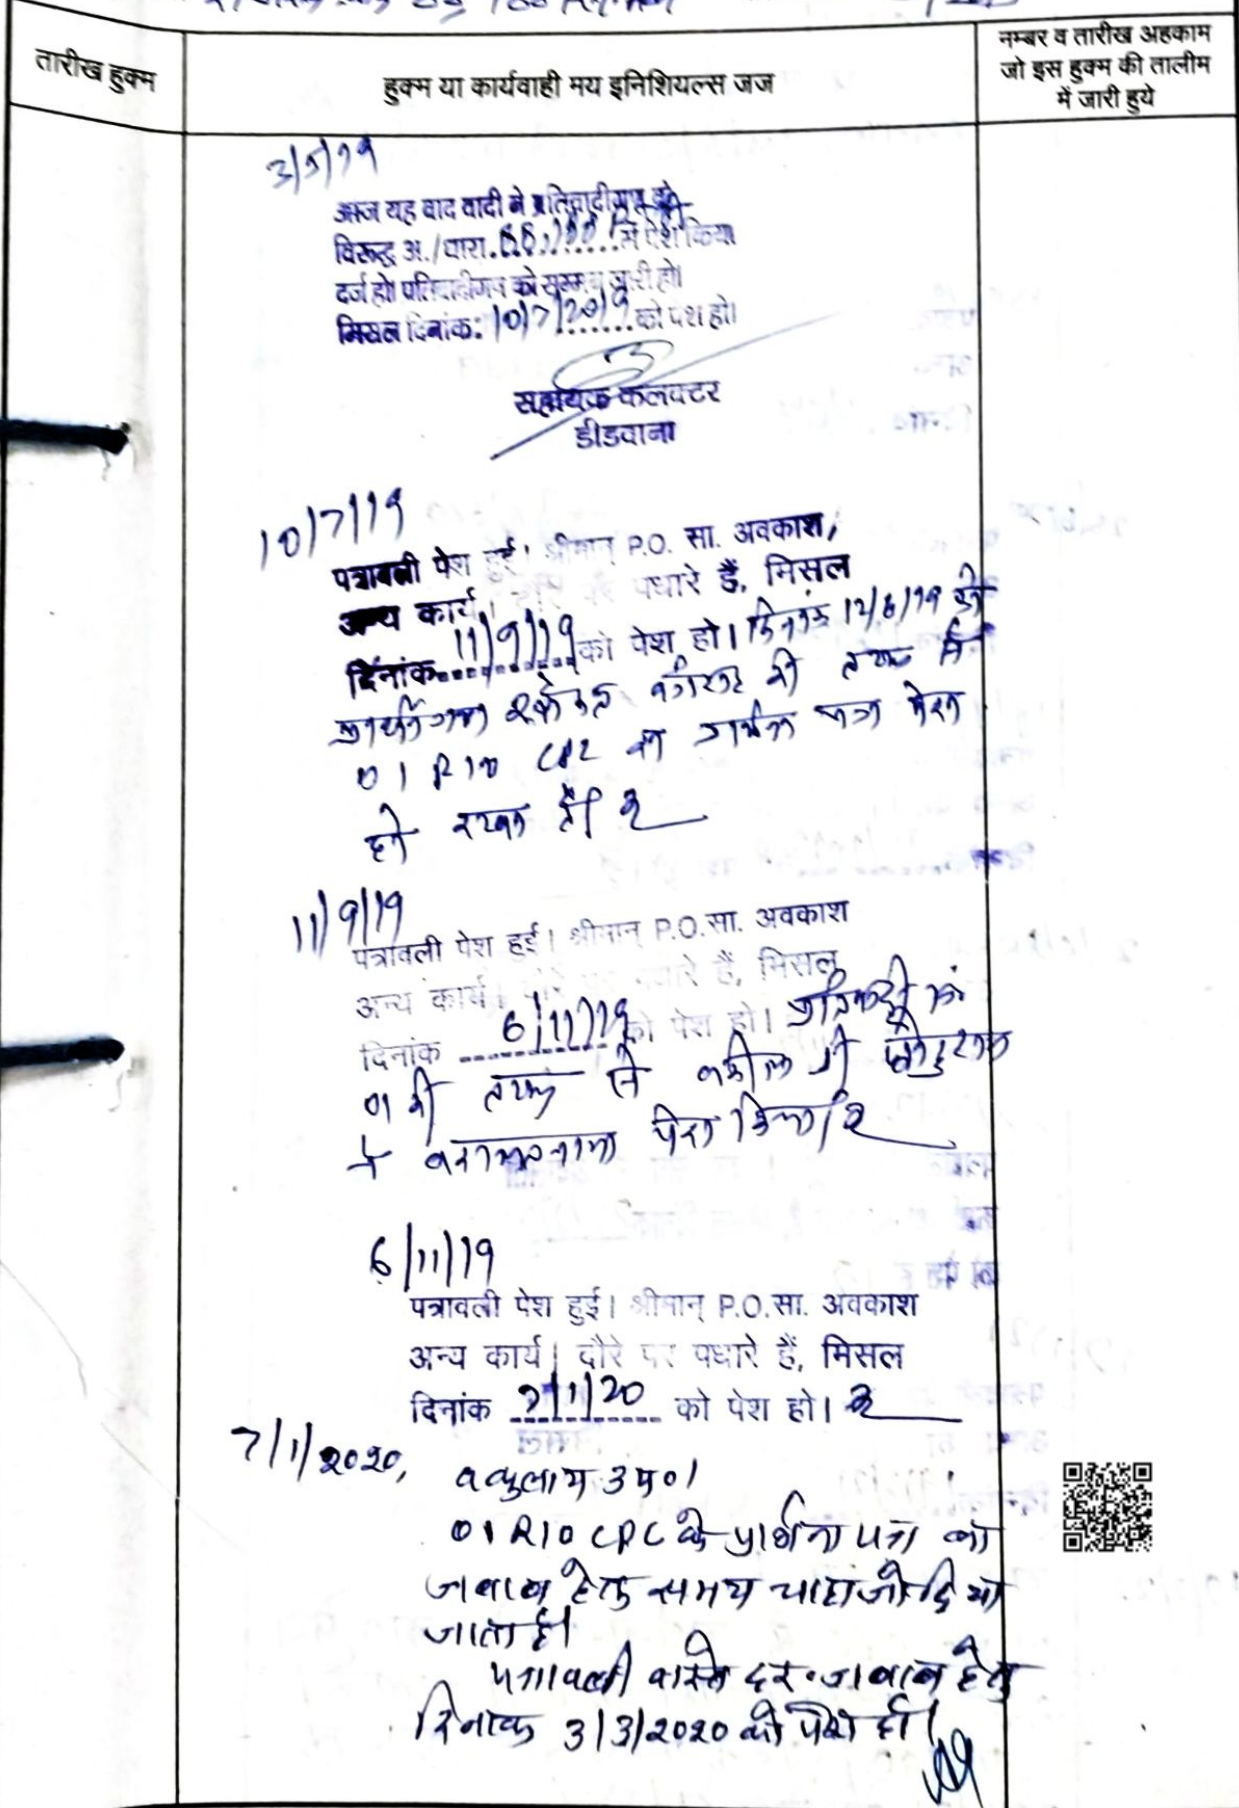 तारीख हुक्म
हुक्म या कार्यवाही मय इनिशियल्स जज
नम्बर व तारीख अहकाम
जो इस हुक्म की तालीम
में जारी हुये
3/5/19
आज यह वाद वादी ने प्रतिवादीगण के
विरूद्ध अ./धारा. 88, में पेश किया
दर्ज हो। प्रतिवादीगण को सम्मन जारी हो।
मिसल दिनांक: 10/7/2019 को पेश हो।
सहायक कलक्टर
डीडवाना
10/7/19
पत्रावली पेश हुई। श्रीमान् P.O. सा. अवकाश,
अन्य कार्य। दौरे पर पधारे हैं, मिसल
दिनांक 11/9/19 को पेश हो। दिनांक 12/6/19 को
की तरफ से
01 R10 CPC का प्रार्थना पत्र पेश
हो रखा है।
11/9/19
पत्रावली पेश हुई। श्रीमान् P.O.सा. अवकाश
अन्य कार्य। दौरे पर पधारे हैं, मिसल
दिनांक 6/11/19 को पेश हो। प्रतिवादी सं
01 की तरफ से वकील श्री
ने वकालतनामा पेश किया।
6/11/19
पत्रावली पेश हुई। श्रीमान् P.O.सा. अवकाश
अन्य कार्य। दौरे पर पधारे हैं, मिसल
दिनांक 7/1/20 को पेश हो।
7/1/2020, वकुलाय उप०।
01 R10 CPC के प्रार्थना पत्र का
जवाब हेतु समय चाहा जो दिया
जाता है।
पत्रावली वास्ते दर. जवाब हेतु
दिनांक 3/3/2020 को पेश हो।